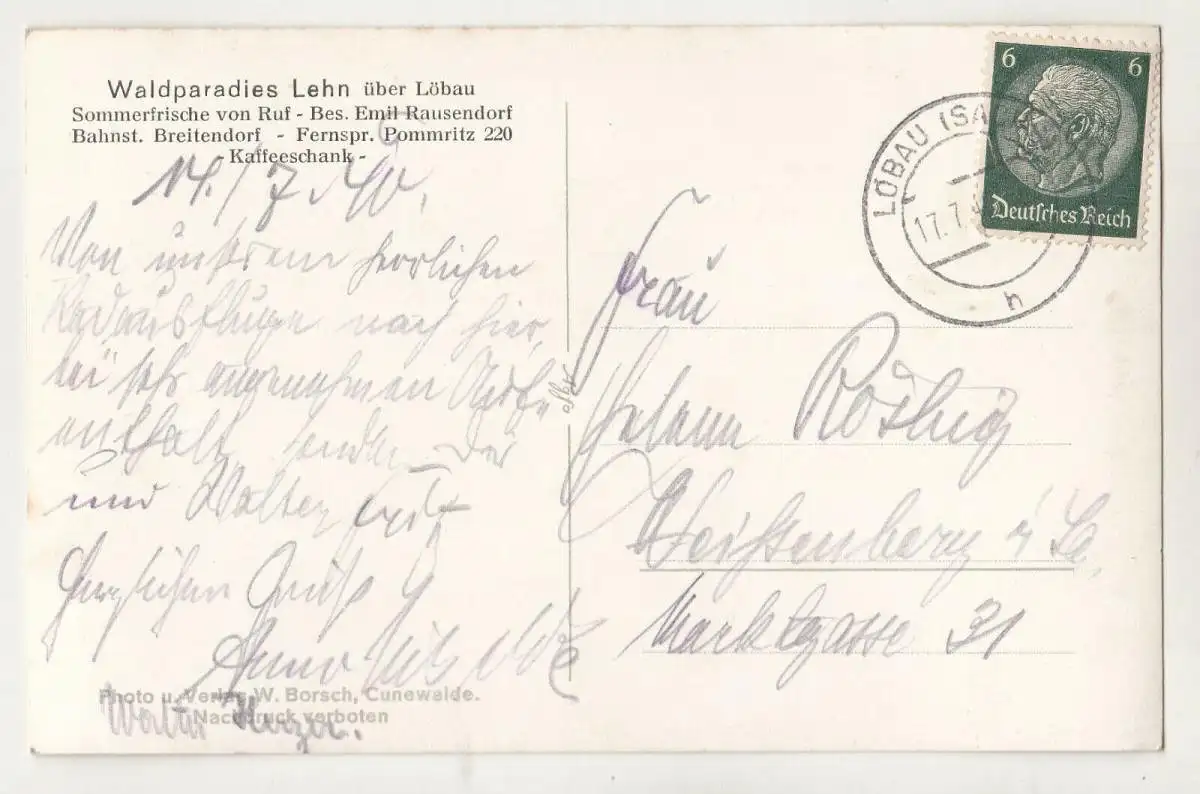 Waldparadies Lehn über Löbau
Sommerfrische von Ruf - Bes. Emil Rausendorf
Bahnst. Breitendorf - Fernspr. Pommritz 220
- Kaffeeschank -
14./7.40.
Von unserem herrlichen
Radausfluge nach hier,
bei sehr angenehmen
enthalt
und Walter
Herzlichen Gruß
Walter
Photo u. Verlag W. Borsch, Cunewalde.
Nachdruck verboten
Frau
Helene Röthig
Weissenberg i/Sa.
Marktgasse 31
LÖBAU (SA
17.7.
h
6 6
Deutsches Reich